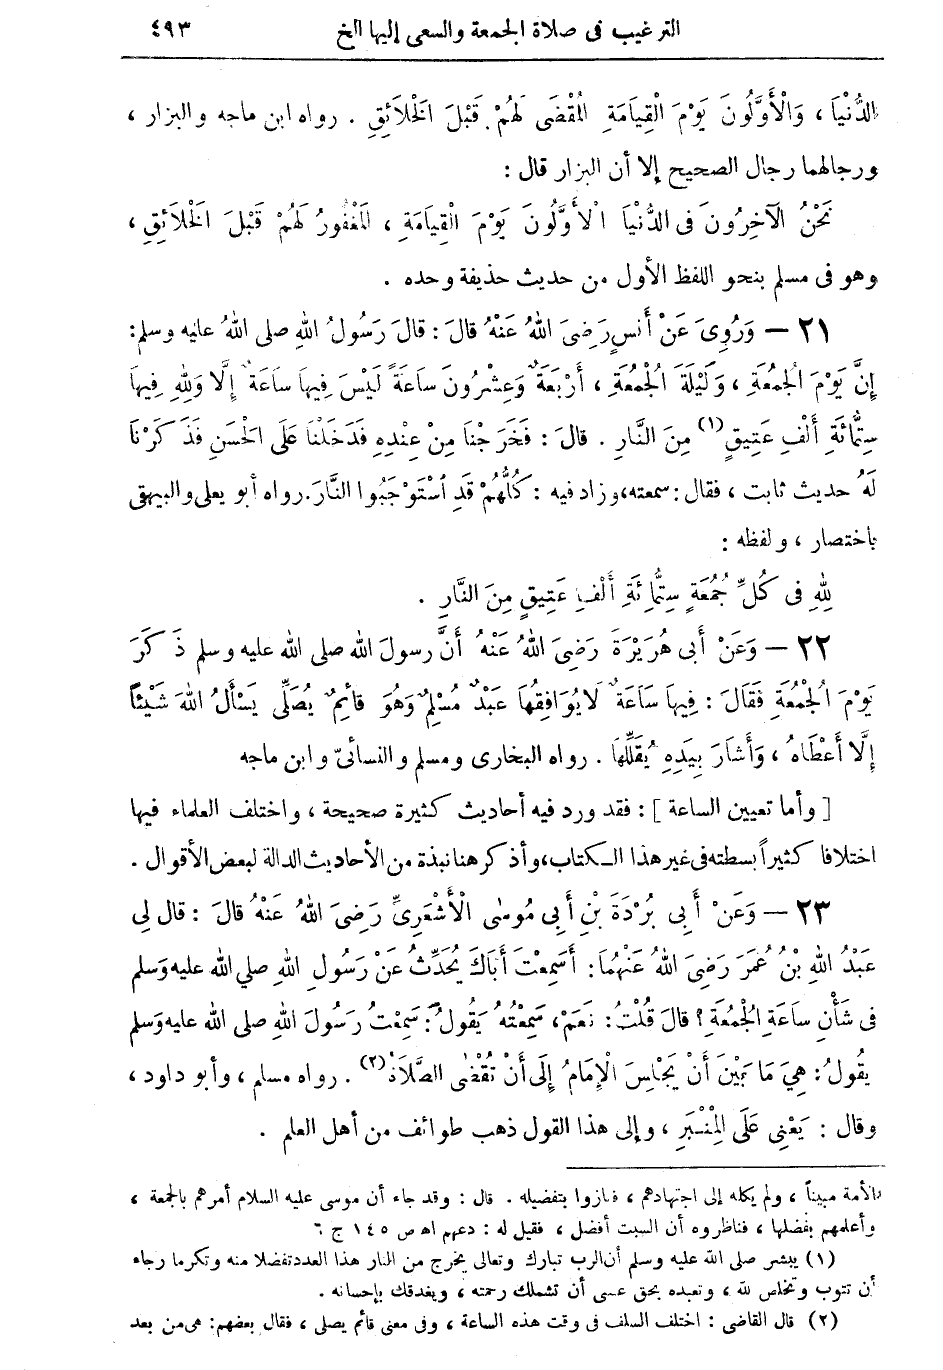 الترغيب فى صلاة الجمعة والسعى إليها الخ ٤٩٣
الدُّنْيَا ، وَالْأَوَّلُونَ يَوْمَ الْقِيَامَةِ الْمُقْضَى لَهُمْ قَبْلَ الْخَلَائِقِ . رواه ابن ماجه والبزار ،
ورجالهما رجال الصحيح إلا أن البزار قال :
نَحْنُ الْآخِرُونَ فى الدُّنْيَا الْأَوَّلُونَ يَوْمَ الْقِيَامَةِ ، الْمَغْفُورُ لَهُمْ قَبْلَ الْخَلَائِقِ ،
وهو فى مسلم بنحو اللفظ الأول من حديث حذيفة وحده .
٢١ — وَرُوِىَ عَنْ أَنسٍ رَضِىَ اللهُ عَنْهُ قالَ : قالَ رَسُولُ اللهِ صلى اللهُ عليه وسلم :
إِنَّ يَوْمَ الْجُمُعَةِ ، وَلَيْلَةَ الْجُمُعَةِ ، أَرْبَعَةٌ وَعِشْرُونَ سَاعَةً لَيْسَ فِيهَا سَاعَةٌ إِلَّا وَلِلهِ فِيهَا
سِتُّمائَةِ أَلْفِ عَتِيقٍ (١) مِنَ النَّارِ . قالَ : فَخَرَجْنَا مِنْ عِنْدِهِ فَدَخَلْنَا عَلَى الْحَسَنِ فَذَكَرْنَا
لَهُ حديث ثابت ، فقال : سمعته، وزاد فيه : كُلُّهُمْ قَدِ اسْتَوْجَبُوا النَّارَ. رواه أبو يعلى والبيهقى
باختصار ، ولفظه :
لِلهِ فى كُلِّ جُمُعَةٍ سِتُّمِائَةِ أَلْفِ عَتِيقٍ مِنَ النَّارِ .
٢٢ — وَعَنْ أَبى هُرَيْرَةَ رَضِىَ اللهُ عَنْهُ أَنَّ رسولَ الله صلى الله عليه وسلم ذَكَرَ
يَوْمَ الْجُمُعَةِ فَقَالَ : فِيهَا سَاعَةٌ لَا يُوَافِقُهَا عَبْدٌ مُسْلِمٌ وَهُوَ قائِمٌ يُصَلِّى يَسْأَلُ اللهَ شَيْئًا
إِلَّا أَعْطَاهُ ، وَأَشَارَ بِيَدِهِ يُقَلِّلُهَا . رواه البخارى ومسلم والنسائىّ وابن ماجه
[ وأما تعيين الساعة ] : فقد ورد فيه أحاديث كثيرة صحيحة ، واختلف العلماء فيها
اختلافا كثيراً بسطته فى غير هذا الـكتاب، وأذكر هنا نبذة من الأحاديث الدالة لبعض الأقوال .
٢٣ — وَعَنْ أَبِي بُرْدَةَ بْنِ أَبِي مُوسٰى الْأَشْعَرِىِّ رَضِىَ اللهُ عَنْهُ قالَ : قال لِى
عَبْدُ اللهِ بْنُ عُمَرَ رَضِىَ اللهُ عَنْهُمَا : أَسَمِعْتَ أَبَاكَ يُحَدِّثُ عَنْ رَسُولِ اللهِ صلي الله عليه وَسلم
فى شَأْنِ سَاعَةِ الْجُمُعَةِ ؟ قالَ قُلْتُ : نَعَمْ، سَمِعْتُهُ يَقُولُ : سَمِعْتُ رَسُولَ اللهِ صلى الله عليه وَسلم
يقُولُ : هِيَ مَا بَيْنَ أَنْ يَجْلِسَ الْإِمَامُ إِلَى أَنْ تُقْضٰى الصَّلَاةُ (٢) . رواه مسلم ، وأبو داود ،
وقال : يَعْنِى عَلَى الْمِنْبَرِ ، وإلى هذا القول ذهب طوائف من أهل العلم .
للأمة مبيناً ، ولم يكله إلى اجتهادهم ، فازوا بتفضيله . قال : وقد جاء أن موسى عليه السلام أمرهم بالجمعة ،
وأعلمهم بفضلها ، فناظروه أن السبت أفضل ، فقيل له : دعهم اه ص ١٤٥ ج ٦
(١) يبشر صلى الله عليه وسلم أن الرب تبارك وتعالى يخرج من النار هذا العدد تفضلا منه وتكرما رجاء
أن تتوب وتخلص لله ، وتعبده بحق عسى أن تشملك رحمته ، ويغدقك بإحسانه .
(٢) قال القاضى : اختلف السلف فى وقت هذه الساعة ، وفى معنى قائم يصلى ، فقال بعضهم: هى من بعد